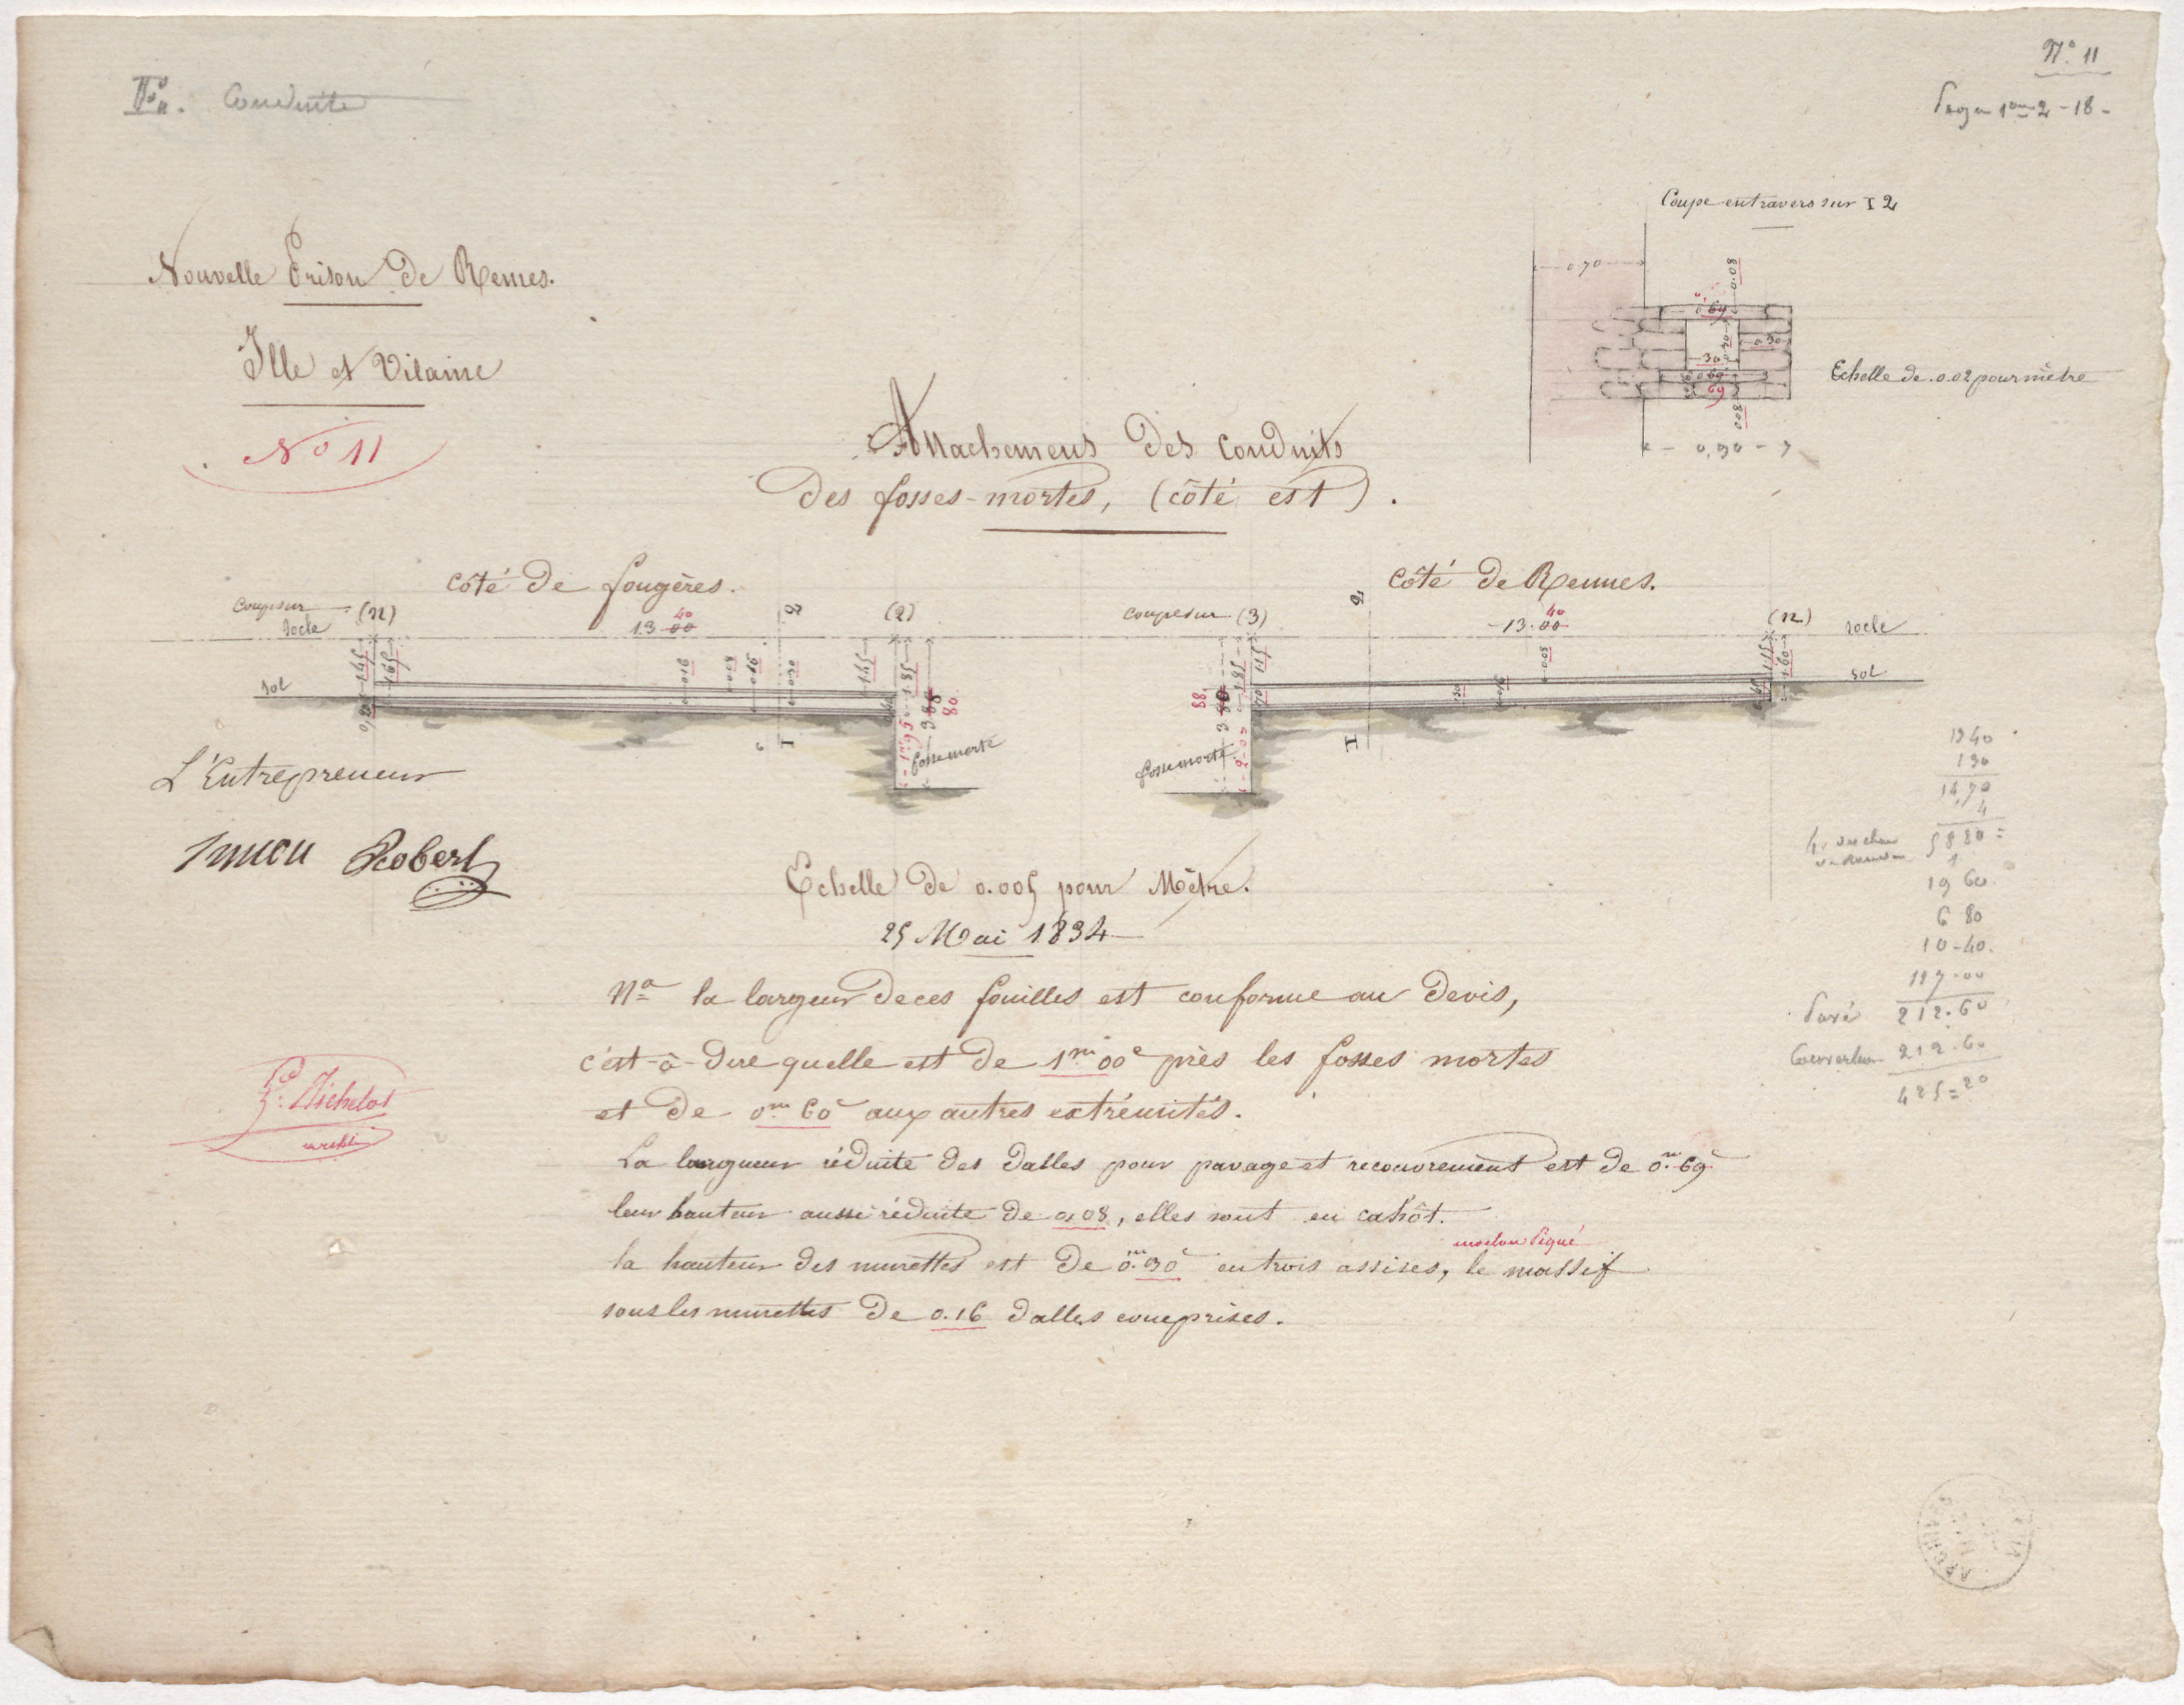 Conduite
N° 11
1re 2 - 18 -
Coupe en travers sur I 2
0.70
0.08
0.69
0.30
30
0.69
69
0.08
0,90
Echelle de 0.02 pour mètre
Nouvelle Prison De Rennes.
Ille et Vilaine
N° 11
Attachemens Des Conduits
Des fosses-mortes, (côté est).
Côté De fougères.
Côté De Rennes.
Coupe sur (12)
socle
13 00
40
2
(2)
coupe sur (3)
2
13.00
40
(12)
socle
sol
sol
I
I
fosse morte
fosse morte
88.
80
L'Entrepreneur
Robert
Echelle De 0.005 pour Mètre.
25 Mai 1834
Na la largeur De ces fouilles est conforme au Devis,
c'est-à-Dire quelle est De 1m 00c près les fosses mortes
et De 0m 60c aux autres extrémités.
La longueur réduite des Dalles pour pavage et recouvrement est De 0m 69c
leur hauteur aussi réduite De 0,08, elles sont en cahôt.
moelon Piqué
la hauteur des murettes est De 0m 30c en trois assises, le massif
sous les murettes De 0.16 Dalles comprises.
Richelot
archi
1340
130
14,70
4
5880
1
19 60
6 80
10-40.
117.00
Pavé 212.60
Couverture 212.60
425=20
ARCHIVES